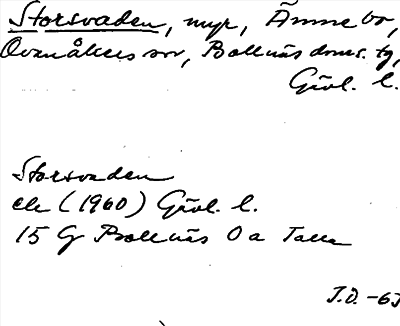 Storsvaden, myr, Ämnebo,
Ovanåkers sn, Bollnäs doms. tg,
Gävl. l.
Storsvaden
ek (1960) Gävl. l.
15 G Bollnäs 0 a
J.Ö. -65